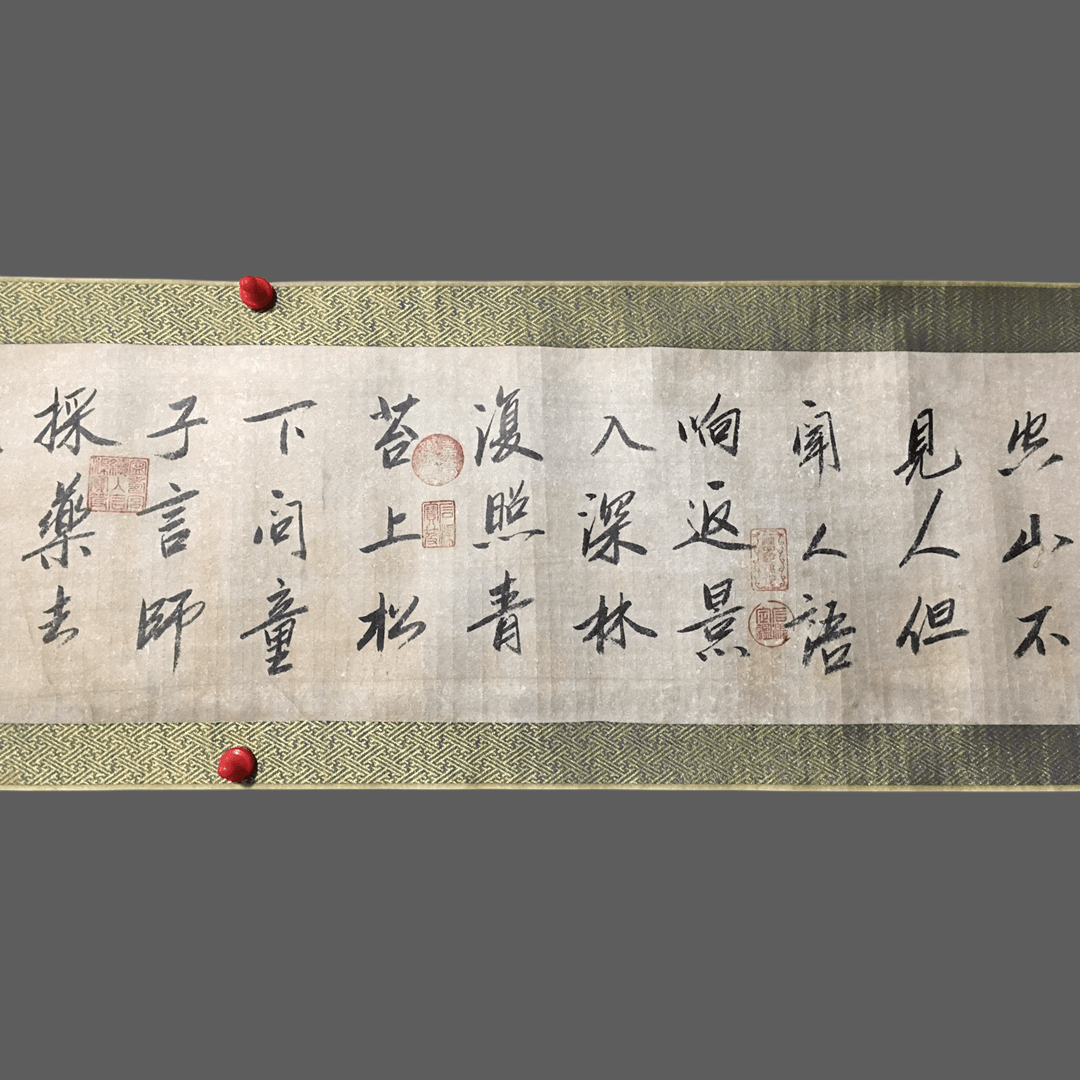 空山不
見人但
聞人語
响返景
入深林
復照青
苔上松
下问童
子言師
採藥去